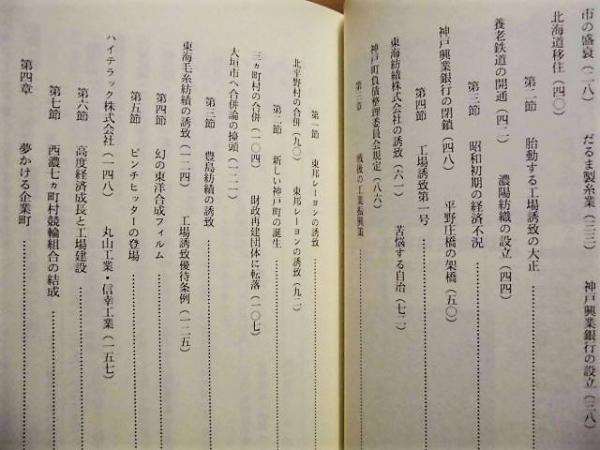 市の盛衰(二八)　だるま製糸業(三三)　神戸興業銀行の設立(三八)
北海道移住(四〇)
第二節　胎動する工場誘致の大正
養老鉄道の開通(四二)　濃陽紡織の設立(四四)
第三節　昭和初期の経済不況
神戸興業銀行の閉鎖(四八)　平野庄橋の架橋(五〇)
第四節　工場誘致第一号
東海紡績株式会社の誘致(六一)　苦悩する自治(七二)
神戸町負債整理委員会規定(八六)
第三章　戦後の工業振興策
第一節　東邦レーヨンの誘致
北平野村の合併(九〇)　東邦レーヨンの誘致(九二)
第二節　新しい神戸町の誕生
三ヵ町村の合併(一〇四)　財政再建団体に転落(一〇七)
大垣市へ合併論の擡頭(一二一)
第三節　豊島紡績の誘致
東海毛糸紡績の誘致(一二四)　工場誘致優待条例(一二五)
第四節　幻の東洋合成フィルム
第五節　ピンチヒッターの登場
ハイテラック株式会社(一四八)　丸山工業・信幸工業(一五七)
第六節　高度経済成長と工場建設
第七節　西濃七ヵ町村競輪組合の結成
第四章　夢かける企業町